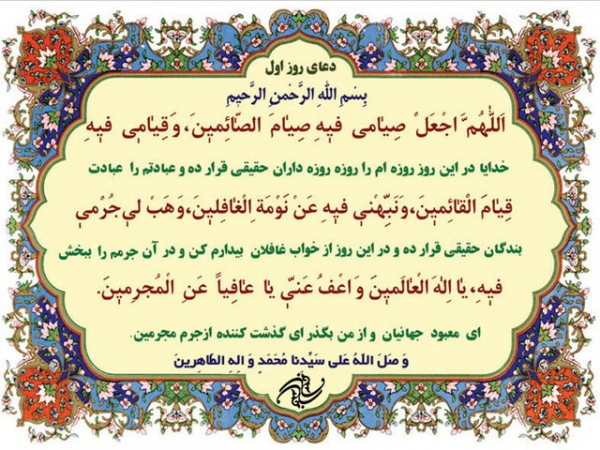 دعای روز اول
بِسْمِ اللهِ الرَّحْمنِ الرَّحیمِ
اَللّهُمَّ اجْعَلْ صِیامی فیهِ صِیامَ الصّائِمینَ، وَ قِیامی فیهِ
خدایا در این روز روزه ام را روزه روزه داران حقیقی قرار ده و عبادتم را عبادت
قِیامَ الْقائِمینَ، وَنَبِّهْنی فیهِ عَنْ نَوْمَةِ الْغافِلینَ، وَهَبْ لی جُرْمی
بندگان حقیقی قرار ده و در این روز از خواب غافلان بیدارم کن و در آن جرمم را ببخش
فیهِ، یا اِلهَ الْعالَمینَ وَ اعْفُ عَنّی یا عافِیاً عَنِ الْمُجرِمینَ.
ای معبود جهانیان و از من بگذر ای گذشت کننده ازجرم مجرمین.
وَ صَلَ اللهُ عَلی سَیِّدنا مُحَمَدٍ وَ الِهِ الطاهِرینَ